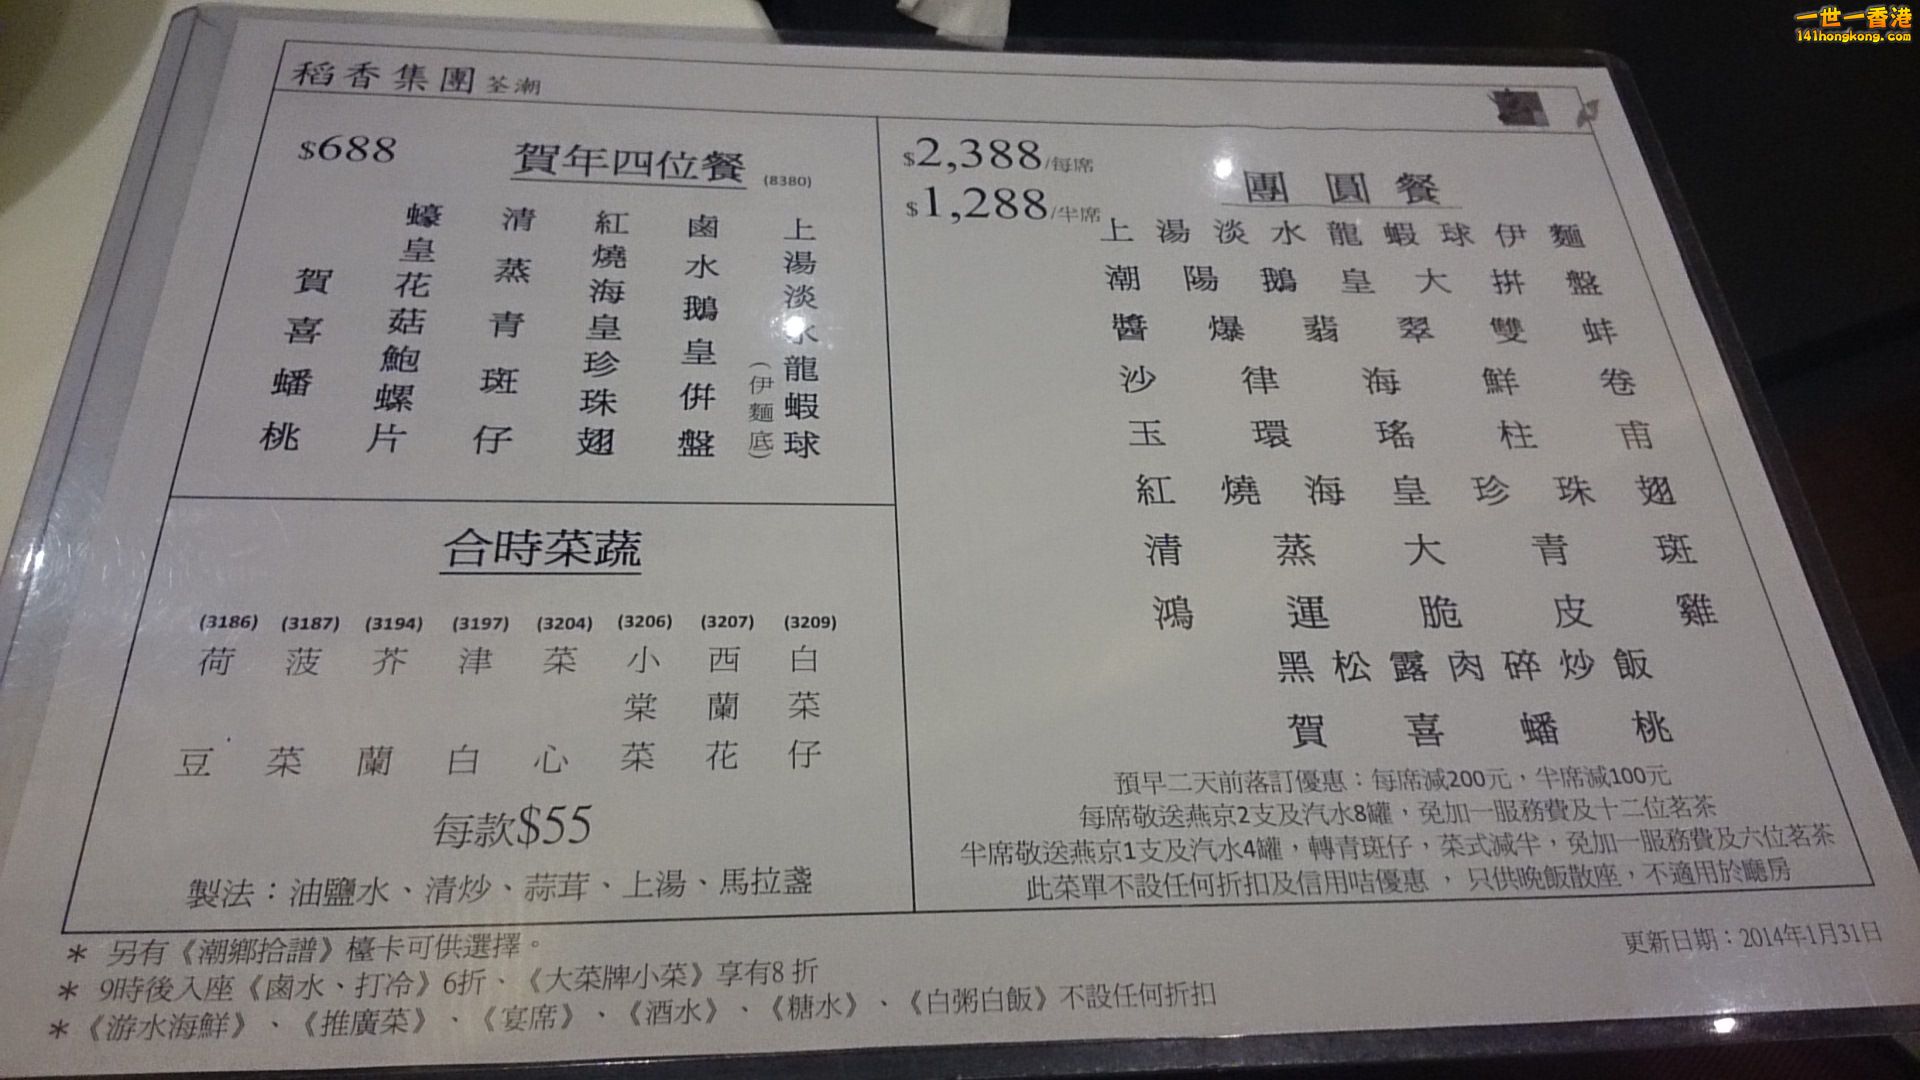 一世一香港
141hongkong.com
稻香集團 荃潮
$688
賀年四位餐 (8380)
上湯淡水龍蝦球
(伊麵底)
鹵水鵝皇併盤
紅燒海皇珍珠翅
清蒸青斑仔
蠔皇花菇鮑螺片
賀喜蟠桃
合時菜蔬
(3186) (3187) (3194) (3197) (3204) (3206) (3207) (3209)
荷豆
菠菜
芥蘭
津白
菜心
小棠菜
西蘭花
白菜仔
每款$55
製法：油鹽水、清炒、蒜茸、上湯、馬拉盞
$2,388/每席
$1,288/半席
團圓餐
上湯淡水龍蝦球伊麵
潮陽鵝皇大拼盤
醬爆翡翠雙蚌
沙律海鮮卷
玉環瑤柱甫
紅燒海皇珍珠翅
清蒸大青斑
鴻運脆皮雞
黑松露肉碎炒飯
賀喜蟠桃
預早二天前落訂優惠：每席減200元，半席減100元
每席敬送燕京2支及汽水8罐，免加一服務費及十二位茗茶
半席敬送燕京1支及汽水4罐，轉青斑仔，菜式減半，免加一服務費及六位茗茶
此菜單不設任何折扣及信用咭優惠 ， 只供晚飯散座，不適用於廳房
＊ 另有《潮鄉拾譜》檯卡可供選擇。
＊ 9時後入座《鹵水、打冷》6折、《大菜牌小菜》享有8 折
＊《游水海鮮》、《推廣菜》、《宴席》、《酒水》、《糖水》、《白粥白飯》不設任何折扣
更新日期：2014年1月31日